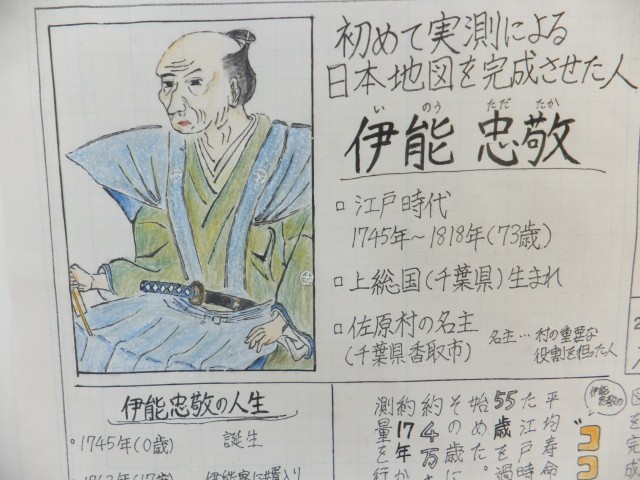 初めて実測による
日本地図を完成させた人
いのう ただたか
伊能 忠敬
江戸時代
1745年~1818年(73歳)
上総国(千葉県)生まれ
佐原村の名主
(千葉県香取市)
名主…村の重要な
役割を担った人
伊能忠敬の人生
1745年(0歳) 誕生
1762年(17歳) 伊能家に婿入り
伊能
忠敬の
ココ
平均寿命
た江戸時
55歳を過
始めた。
その歳に
約4万
約17年か
測量を行